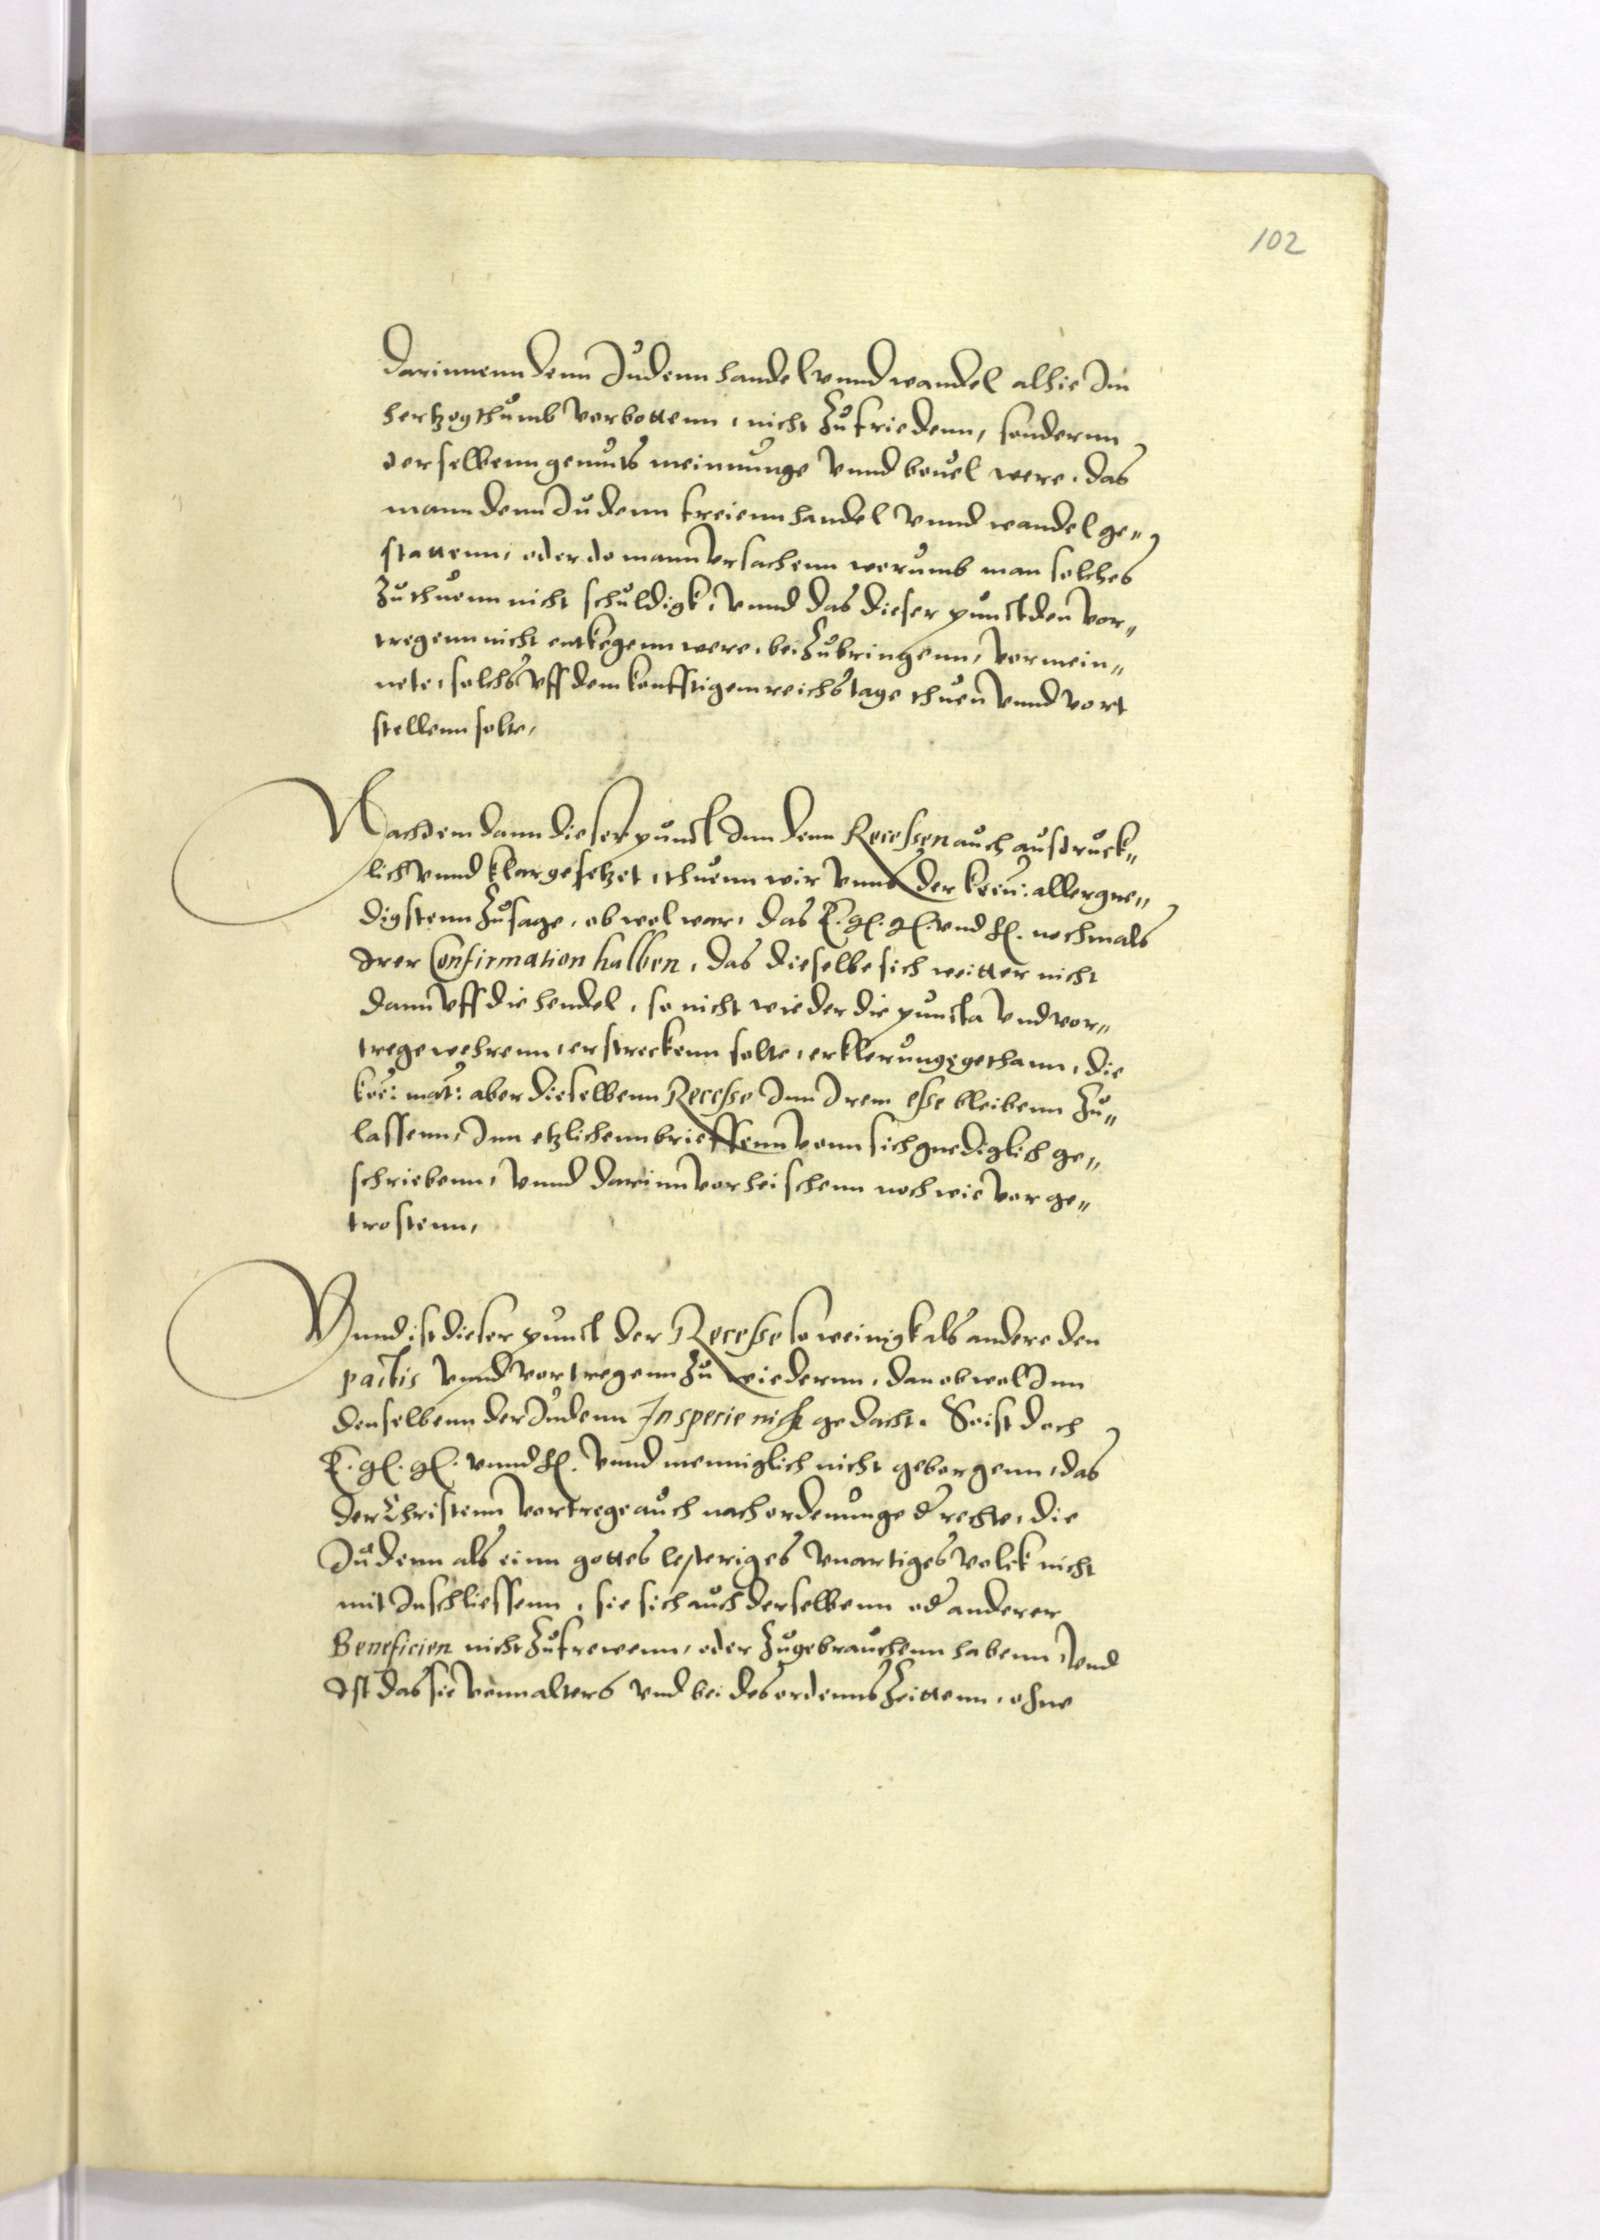 102
darinnenn denn Judenn handel vnnd wandel alhie Im
hertzogthumb vorbottenn, nicht zufriedenn, sondernn
derselbenn gemuts meinnunge vnnd beuel were, das
mann denn Judenn freienn handel vnnd wandel ge„
stattenn, oder do mann vrsachenn worumb man solches
zuthuenn nicht schuldigk, vnnd das dieser punct den vor„
tregenn nicht entkegenn were, bei zubringenn, vormein„
nete, solchs vff dem konfftigem reichs tage thuen vnnd vort
stellenn solte,
Nachdem dann dieser punct Inn denn Recessen auch ausdruck„
lich vnnd klar gesetzet, thuenn wir vnns der allergne„
digstenn zusage, ob wol war, das E. gl. gl. vnd fl. nochmals
Irer Confirmation halben, das dieselbe sich weitter nicht
dann vff die hendel, so nicht wieder die puncta vnd vor„
trege wehrenn, erstreckenn solte, erklerunge gethann, die
matt: aber dieselbenn Recesse Inn Irem esse bleibenn zu„
lassenn, Inn etzlichenn brieffenn vonn sich gnediglich ge„
schriebenn, vnnd darinn vorheischenn noch wie vor ge„
trostenn,
Vnnd ist dieser punct der Recesse so weinigk als andere den
pactis vnnd vortregenn zu wiedernn, dan ob wol Inn
denselbenn der Judenn In specie nicht gedacht. So ist doch
E. gl. gl. vnnd fl. vnnd menniglich nicht geborgenn, das
der Christenn vortrege auch nach ordenunge d rechte, die
Judenn als einn gottes lesteriges vnartiges volck nicht
mit Inschliessenn, sie sich auch derselbenn od anderer
Beneficien nicht zufrewenn, oder zugebrauchenn habenn, vnd
Ist das sie vonn alters vnd bei des ordenns zeittenn, ohne